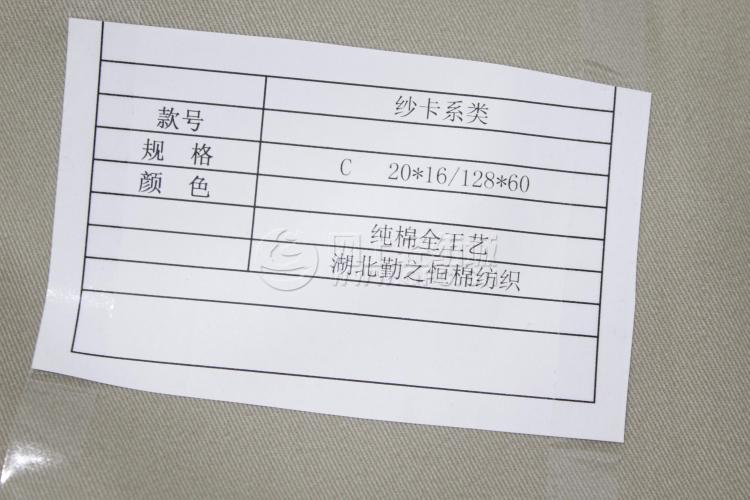 纱卡系类
款号
规 格 C 20*16/128*60
颜 色
纯棉全工艺
湖北勤之恒棉纺织